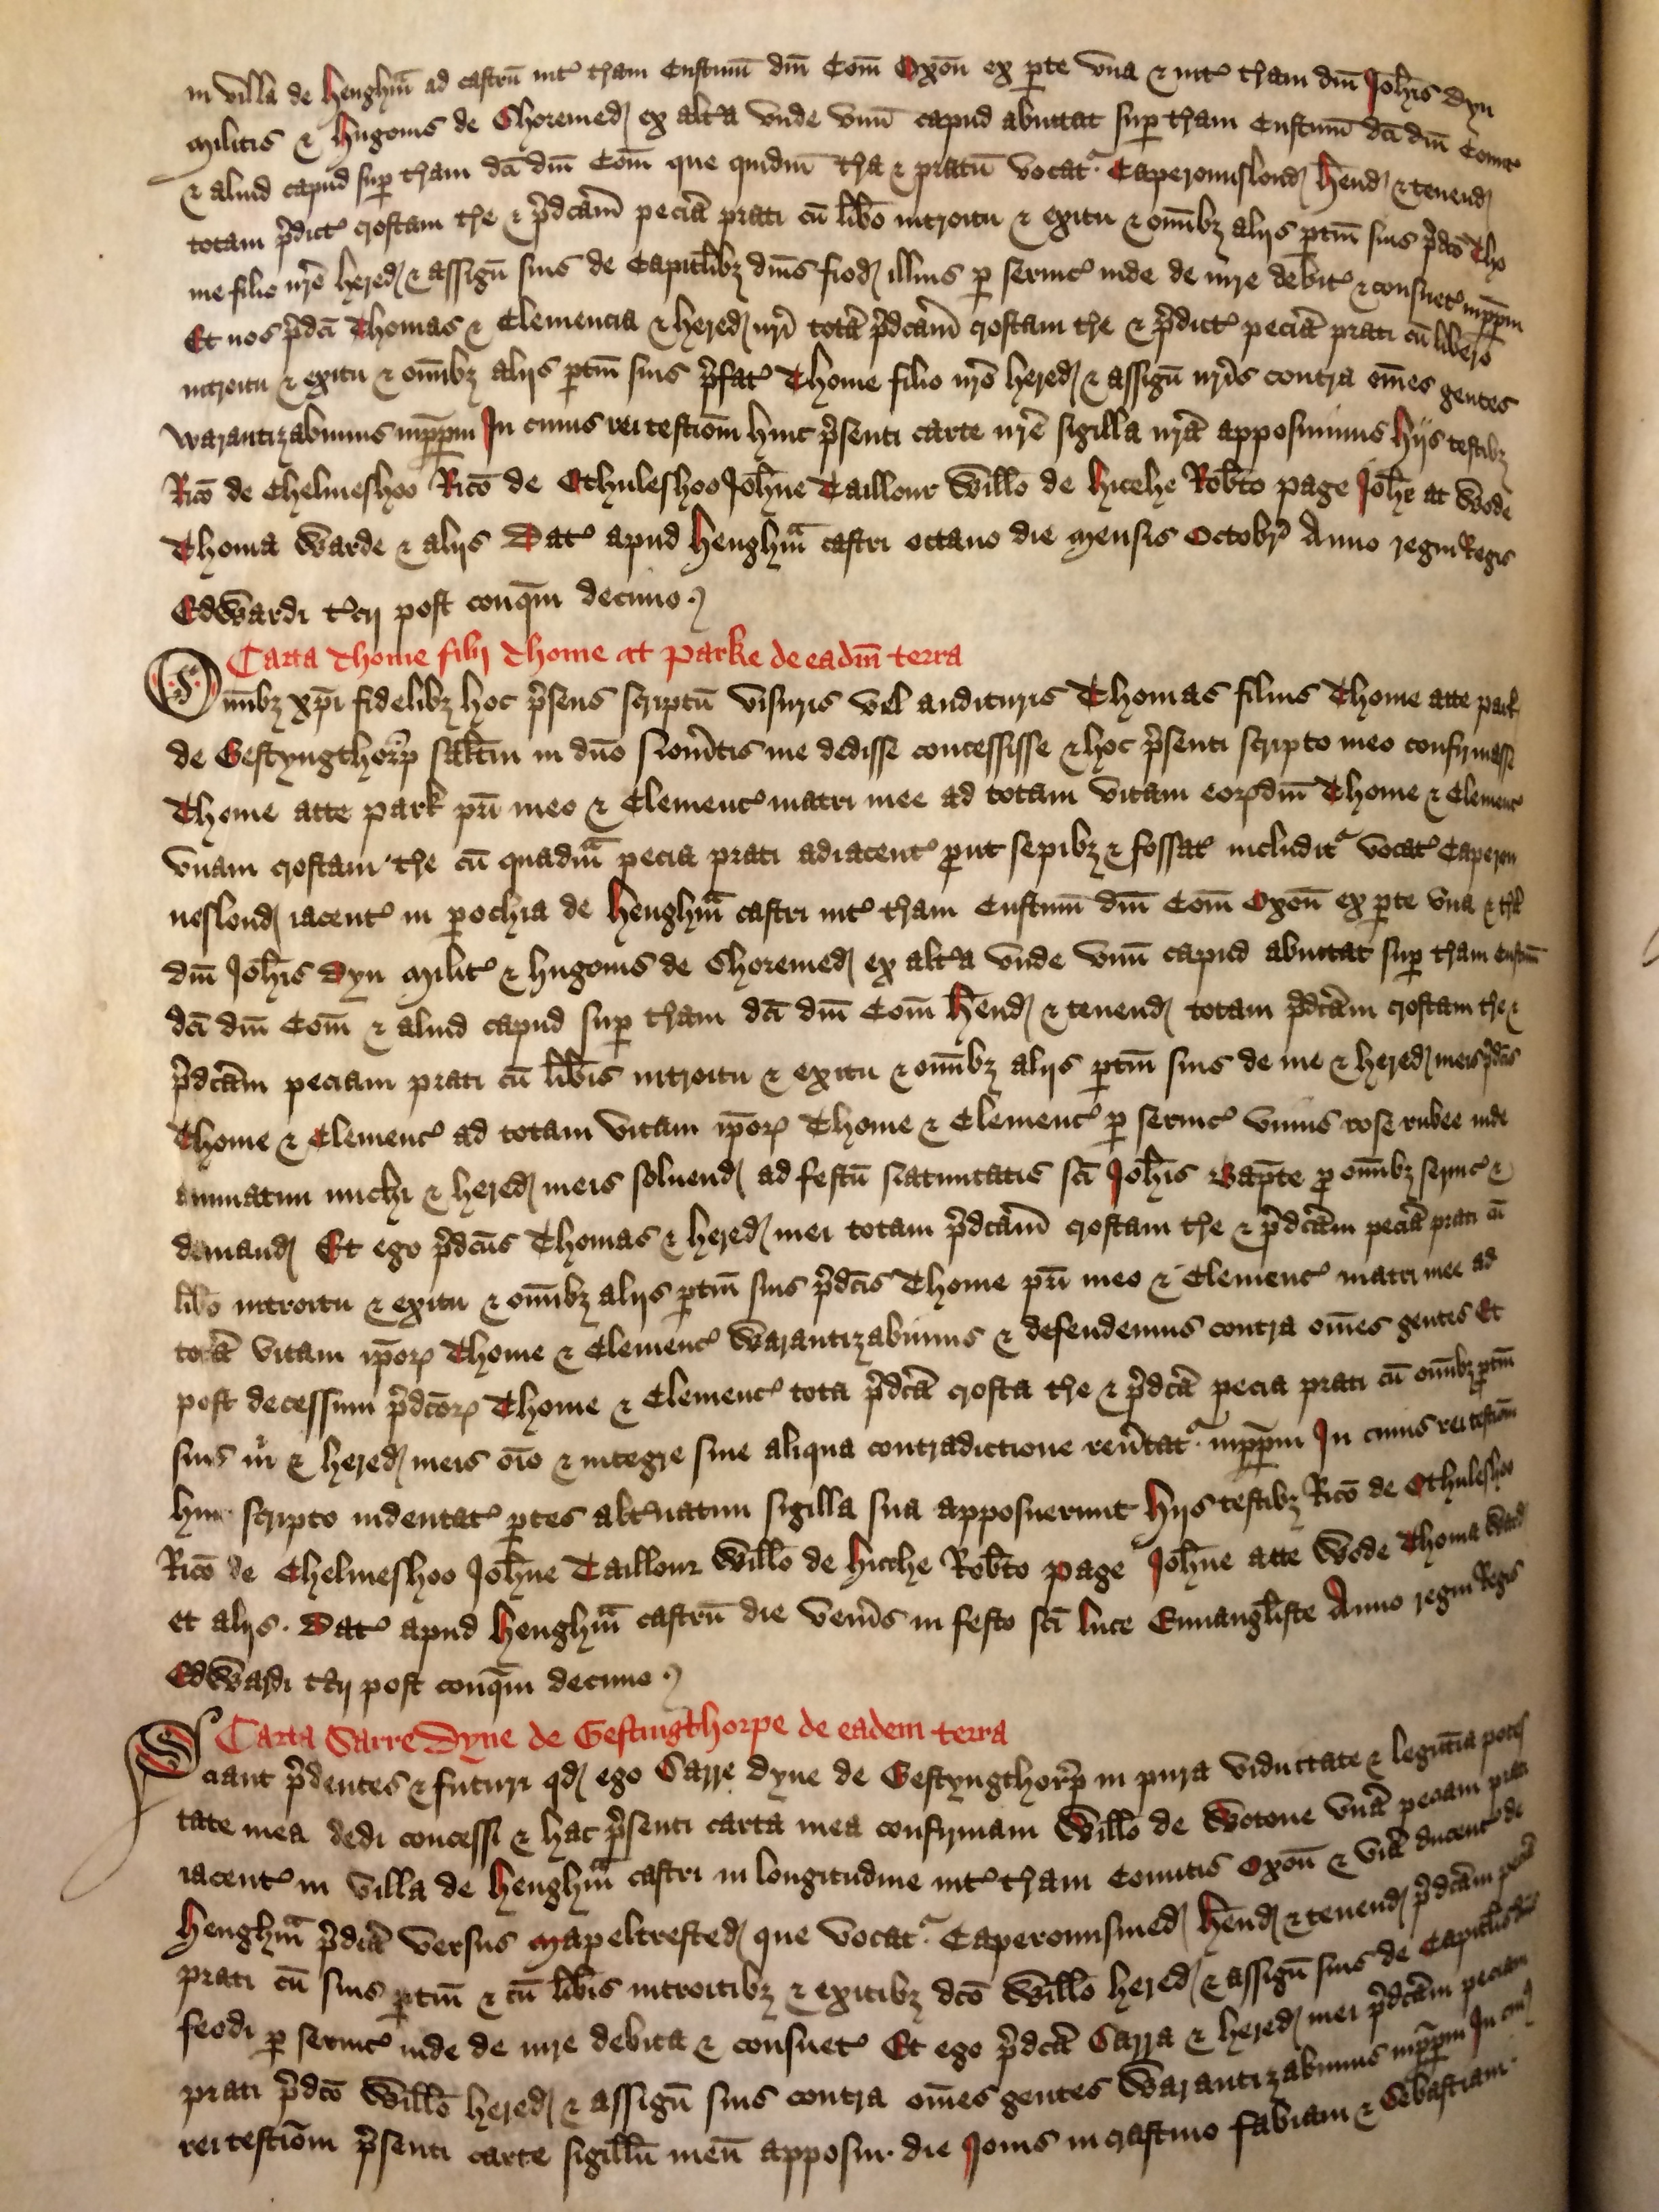 in villa de Henghm̄ ad castrū int' t'ram Custum̄ dn̄i Com̄ Oxōn ex p̄te vna ⁊ int' t'ram dn̄i Joh̄is Dyn
Militis ⁊ Hugonis de Shoremed̄ ex alt'a vnde vnū capud abuttat sup̄ t'ram Custum̄ dc̄i dn̄i Comit'
⁊ aliud capud sup̄ t'ram dc̄i dn̄i Com̄ que quidm̄ t'ra ⁊ pratū vocat' Caperonnislond̄ Hend̄ ⁊ tenend̄
totam p̄dict' croftam t're ⁊ p̄dcām peciā prati cū lib̄o introitu ⁊ exitu ⁊ om̄ibȝ alijs p̄tin̄ suis p̄dc̄o Tho
me filio nr̄o hered̄ ⁊ assign̄ suis de Capitlibȝ dn̄is fiod̄ illius p̄ seruic' inde de iure debit' ⁊ consuet' inpp̄m
Et nos p̄dc̄i Thomas ⁊ Clemencia ⁊ hered̄ nr̄i totā p̄dcām croftam t're ⁊ p̄dict' peciā prati cū libero
introitu ⁊ exitu ⁊ om̄ibȝ alijs p̄tin̄ suis p̄fat' Thome filio nr̄o hered̄ ⁊ assign̄ nr̄is contra om̄es gentes
warantizabimus inpp̄m In cuius rei testiom̄ huic p̄senti carte nr̄e sigilla nr̄a apposuimus Hijs testibȝ
Ric̄o de Chelmeshoo Ric̄o de Othuleshoo Joh̄ne Taillour Will̄o de Hicche Rob̄to Page Joh̄e at Wode
Thoma Warde ⁊ alijs Dat' apud Henghm̄ castri octauo die Mensis Octobr' Anno regni Regis
Edwardi t'cij post conq̄m decimo
Carta Thome filij Thome at Parke de eadm̄ terra
Om̄ibȝ xp̄i fidelibȝ hoc p̄sens scriptū visuris vel audituris Thomas filius Thome atte park
de Gestyngthorp̄ salt̄m in dn̄o Nou'itis me dedisse concessisse ⁊ hoc p̄senti scripto meo confirmasse
Thome atte park pr̄i meo ⁊ Clemenc' matri mee ad totam vitam eorꝝdm̄ Thome ⁊ Clemenc'
vnam croftam t're cū quadm̄ pecia prati adiacent' p̄ut sepibȝ ⁊ fossat' includit' vocat' Caperon
neslond̄ iacent' in p̄ochia de Henghm̄ castri int' t'ram Custum̄ dn̄i Com̄ Oxōn ex p̄te vna ⁊ t'rā
dn̄i Joh̄is Dyn Milit' ⁊ Hugonis de Shoremed̄ ex alt'a vnde vnū capud abuttat sup̄ t'ram custum̄
dc̄i dn̄i Com̄ ⁊ aliud capud sup̄ t'ram dc̄i dn̄i Com̄ Hend̄ ⁊ tenend̄ totam p̄dcām croftam t're ⁊
p̄dcām peciam prati cū lib̄is introitu ⁊ exitu ⁊ om̄ibȝ alijs p̄tin̄ suis de me ⁊ hered̄ meis p̄dc̄is
Thome ⁊ Clemenc' ad totam vitam ip̄orꝝ Thome ⁊ Clemenc' p̄ seruic' vnius rose rubee inde
annuatim michi ⁊ hered̄ meis soluend̄ ad festū Natiuitatis sc̄i Joh̄is Bap̄te p̄ om̄ibȝ seruic' ⁊
demand̄ Et ego p̄dc̄us Thomas ⁊ hered̄ mei totam p̄dcām croftam t're ⁊ p̄dcām peciā prati cū
lib̄o introitu ⁊ exitu ⁊ om̄ibȝ alijs p̄tin̄ suis p̄dc̄is Thome pr̄i meo ⁊ Clemenc' matri mee ad
totā vitam ip̄orꝝ Thome ⁊ Clemenc' Warantizabimus ⁊ defendemus contra om̄es gentes Et
post decessum p̄dc̄orꝝ Thome ⁊ Clemenc' tota p̄dc̄a crofta t're ⁊ p̄dc̄a pecia prati cū om̄ibȝ p̄tin̄
suis m' ⁊ hered̄ meis oīo ⁊ integre sine aliqua contradictione reu'tat' inpp̄m In cuius rei testiom̄
huic scripto indentat' p̄tes alt'natim sigilla sua apposuerunt Hijs testibȝ Ric̄o de Othuleshoo
Ric̄o de Chelmeshoo Joh̄ne Taillour Will̄o de Hicche Rob̄to Page Joh̄ne atte Wode Thoma Ward
et alijs. Dat' apud Henghm̄ castrū die Ven'is in festo sc̄i Luce Euuangliste Anno regni Regis
Edwardi t'cij post conq̄m decimo
Carta Sarre Dyne de Gestingthorpe de eadem terra
Sciant p̄dentes ⁊ futuri qd̄ ego Sarre dyne de Gestyngthorp̄ in pura viduitate ⁊ legitīa potes
tate mea dedi concessi ⁊ hac p̄senti carta mea confirmaui Will̄o de Wotone vnā peciam prati
iacent' in villa de Henghm̄ castri in longitudine int' t'ram Comitis Oxōn ⁊ viā ducent' de
Henghm̄ p̄dict̄ versus Mapeltrested̄ que vocat' Caperonnsmed̄ Hend̄ ⁊ tenend̄ p̄dcām peciā
prati cū suis p̄tin̄ ⁊ cū lib̄is introitibȝ ⁊ exitibȝ dc̄o Will̄o hered̄ ⁊ assign̄ suis de Capitlis dn̄is
feodi p̄ seruic' inde de iure debita ⁊ consuet' Et ego p̄dc̄a Sarra ⁊ hered̄ mei p̄dcām peciam
prati p̄dc̄o Will̄o hered̄ ⁊ assign̄ suis contra om̄es gentes Warantizabimus inpp̄m In cui'
rei testiom̄ p̄senti carte sigillū meū apposui. die Jouis in crastino Fabiani ⁊ Sebastiani